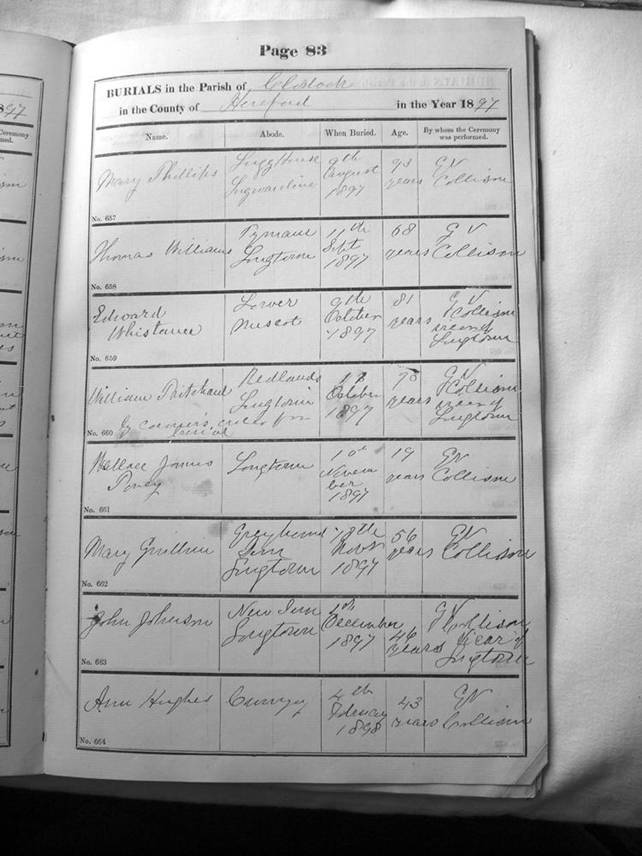 897
Ceremony
med.
Page 83
BURIALS in the Parish of Clodock
in the County of Hereford in the Year 1897
Name. Abode. When Buried. Age. By whom the Ceremony was performed.
Mary Phillips
9th August 1897
93 years
GV Collison
No. 657
Thomas Williams
Longtown
11th Sept 1897
68 years
GV Collison
No. 658
Edward Whistance
Lower
9th October 1897
81 years
GV Collison
Longtown
No. 659
William Pritchard
Redlands Longtown
October 1897
years
GV Collison
Longtown
by coroner's order for burial
No. 660
Wallace James
Longtown
10th November 1897
19 years
GV Collison
No. 661
Mary
Greyhound Inn Longtown
Novr 1897
56 years
GV Collison
No. 662
John Johnson
New Inn Longtown
December 1897
46 years
GV Collison Vicar of Longtown
No. 663
Ann Hughes
4th February 1898
43 years
GV Collison
No. 664